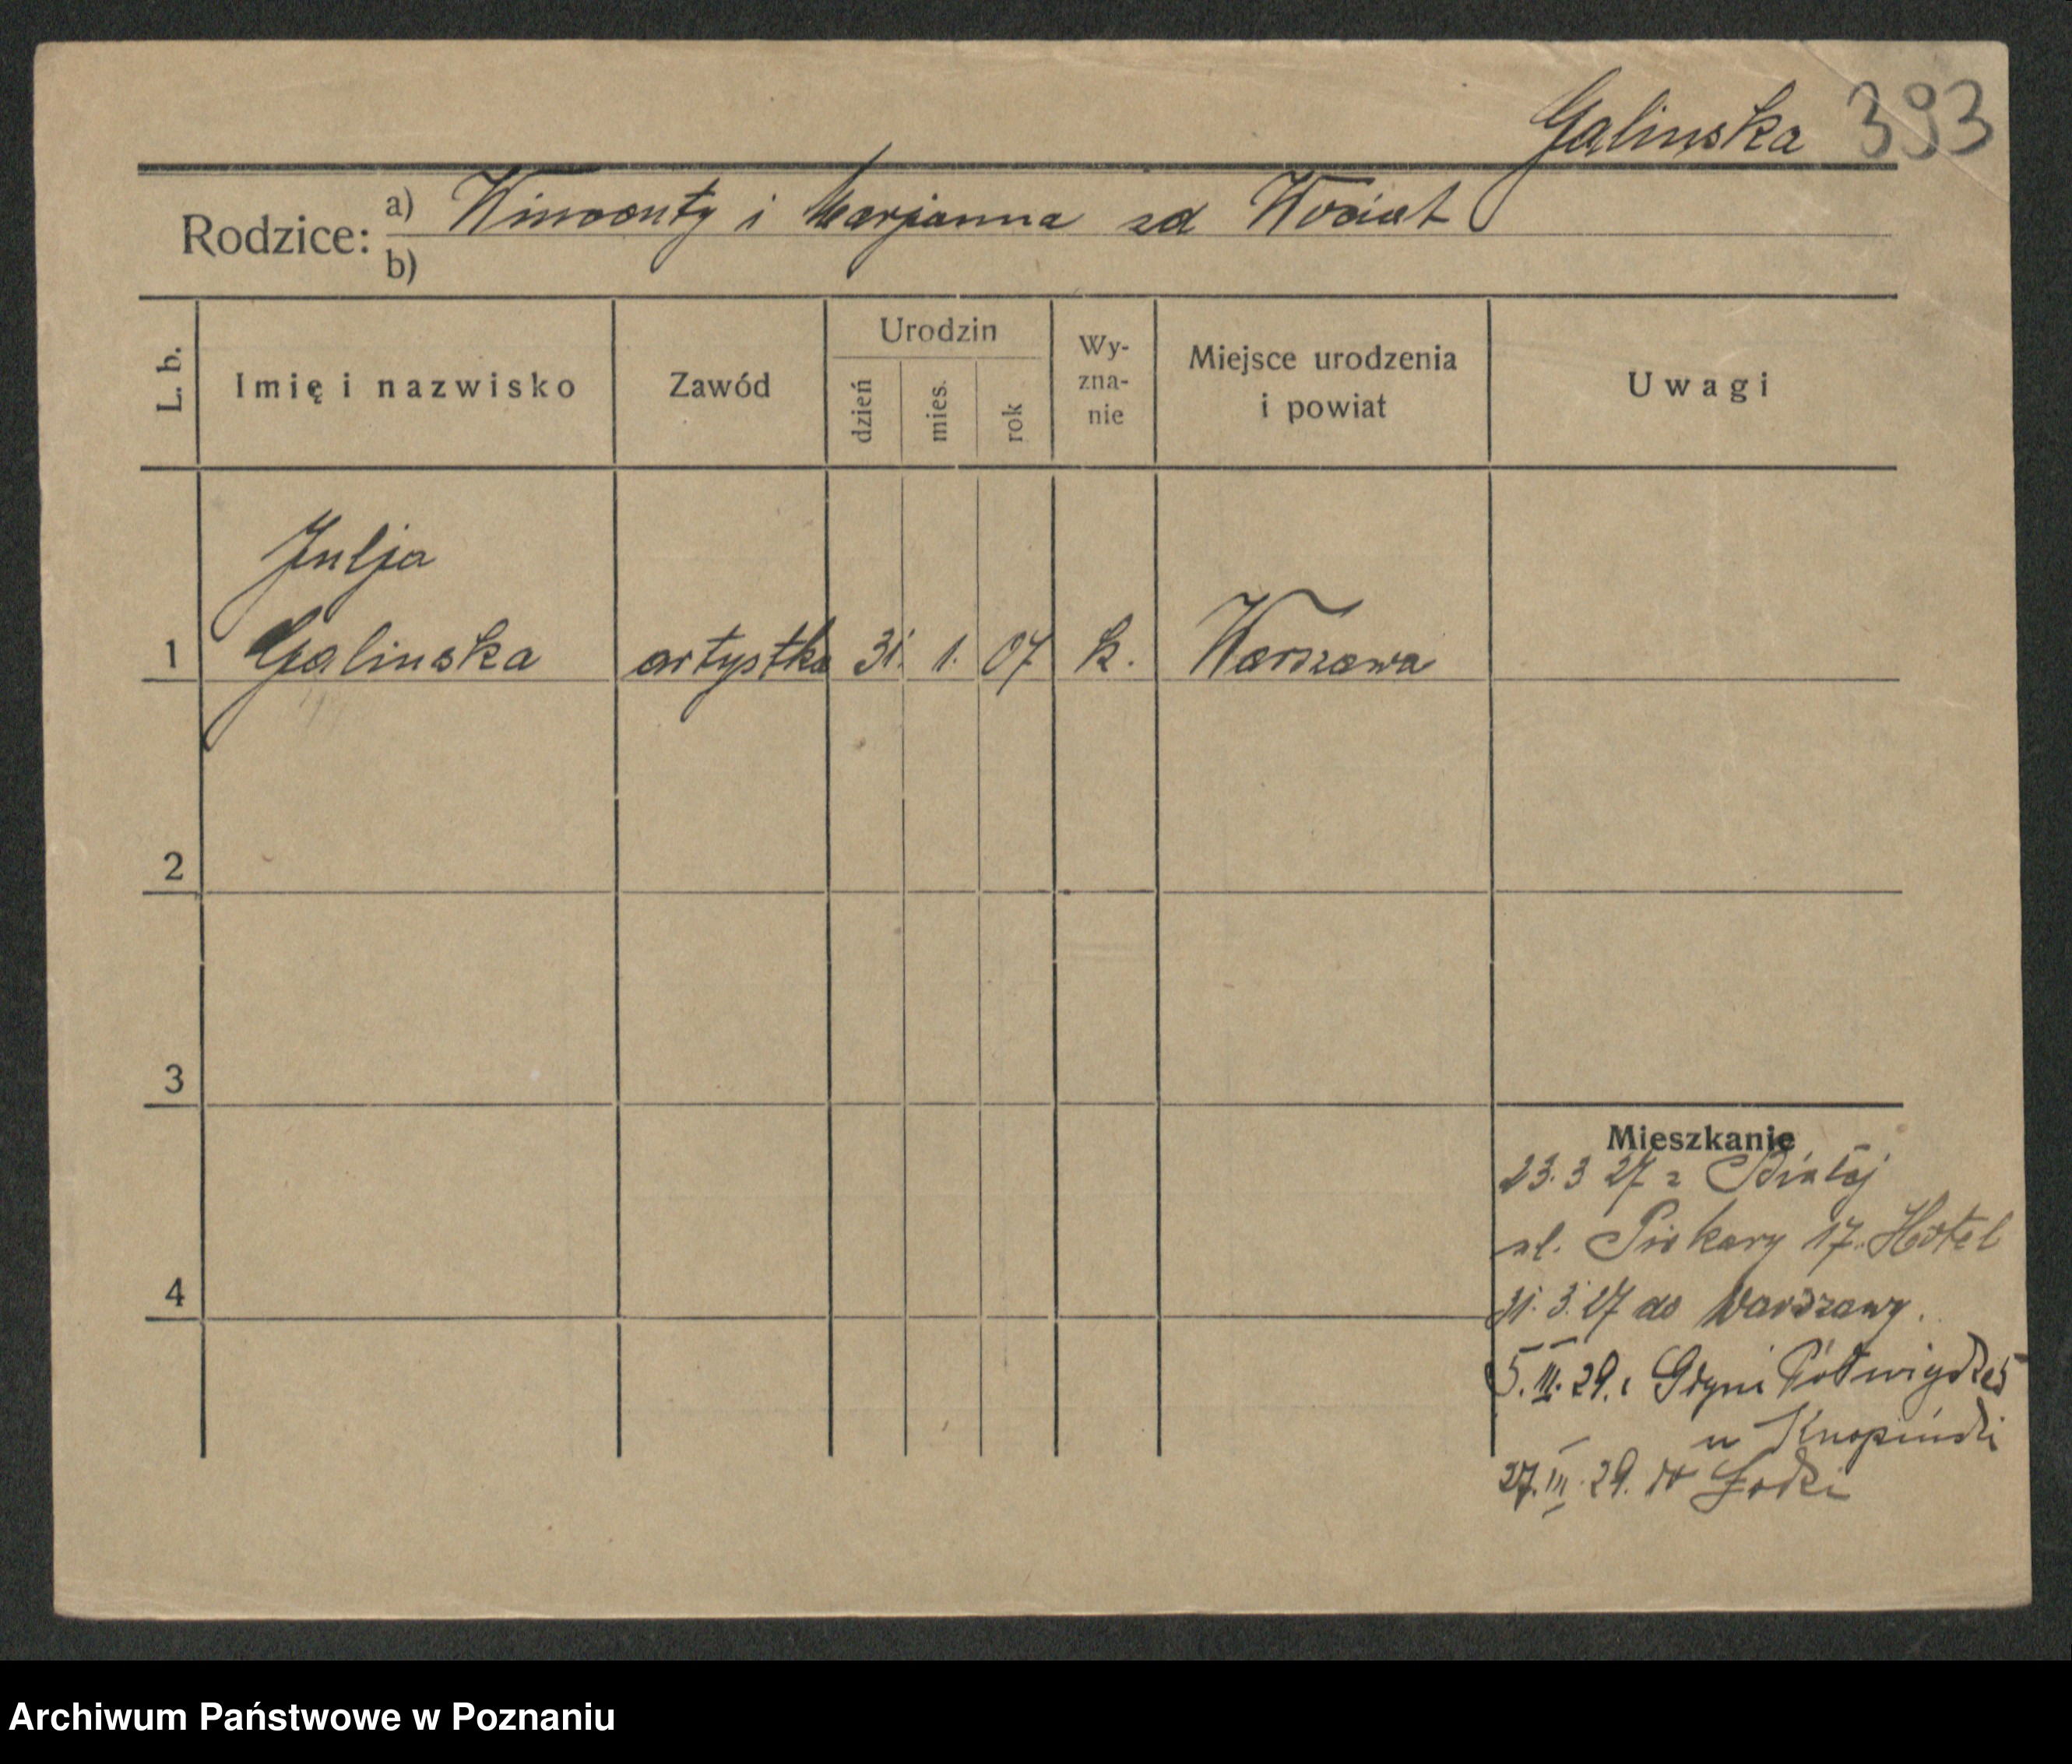 Galinska 393
Rodzice: a) Wincenty i Marjanna zd Wociat
b)
L. b. Imię i nazwisko Zawód Urodzin dzień mies. rok Wyznanie Miejsce urodzenia i powiat Uwagi
Julja
1 Galinska artystka 31. 1. 07 k. Warszawa
2
3
Mieszkanie
23. 3 27 z Białej
ul. Piekary 17. Hotel
4
31. 3. 27 do Warszawy.
5. III. 29. z Gdyni Półwiejska 5
u Knopiński
27. III. 29. do Łodzi
Archiwum Państwowe w Poznaniu